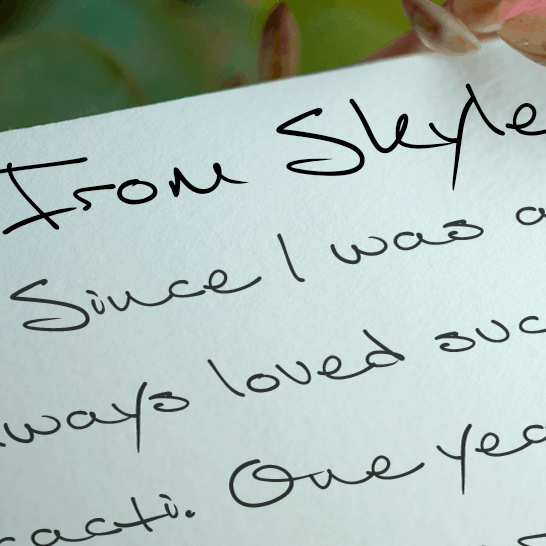 From Skyle
Since I was a
lways loved suc
cacti. One yea